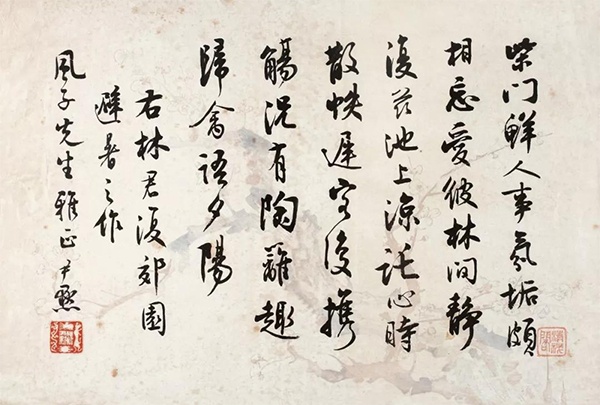 柴門鮮人事氛垢頗
相忘愛彼林間靜
復茲池上涼託心時
散帙遲客復攜
觴況有陶籬趣
歸禽語夕陽
右林君復郊園
避暑之作
風子先生雅正 尹默